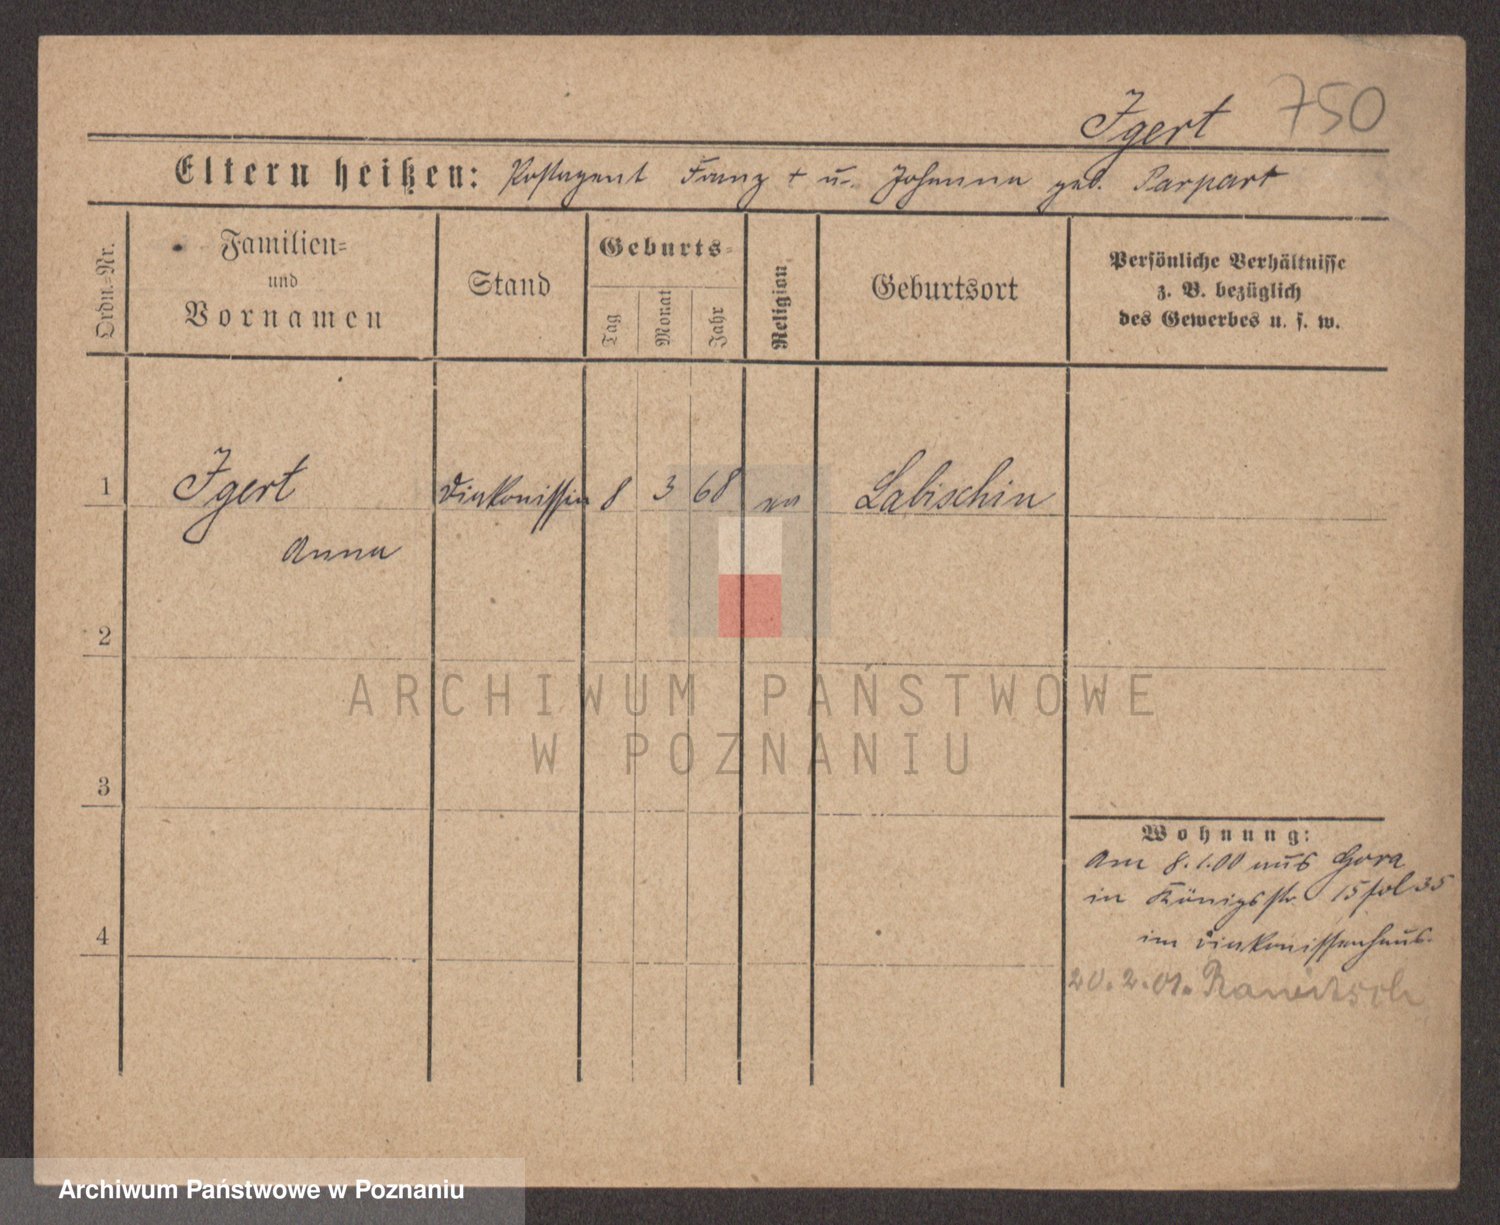 Igert 750
Eltern heißen: Postagent Franz + u. Johanna geb. Parpart
Ordn.-Nr.
Familien-
und
Vornamen
Stand
Geburts-
Tag
Monat
Jahr
Religion
Geburtsort
Persönliche Verhältnisse
z. B. bezüglich
des Gewerbes u. s. w.
1 Igert Diakonissin 8 3 68 ev Labischin
Anna
2
ARCHIWUM PAŃSTWOWE
W POZNANIU
3
Wohnung:
Am 8.1.00 aus Gora
in Königsstr. 15 fol 35
4
im Diakonissenhaus.
20.2.01. Rawitsch
Archiwum Państwowe w Poznaniu